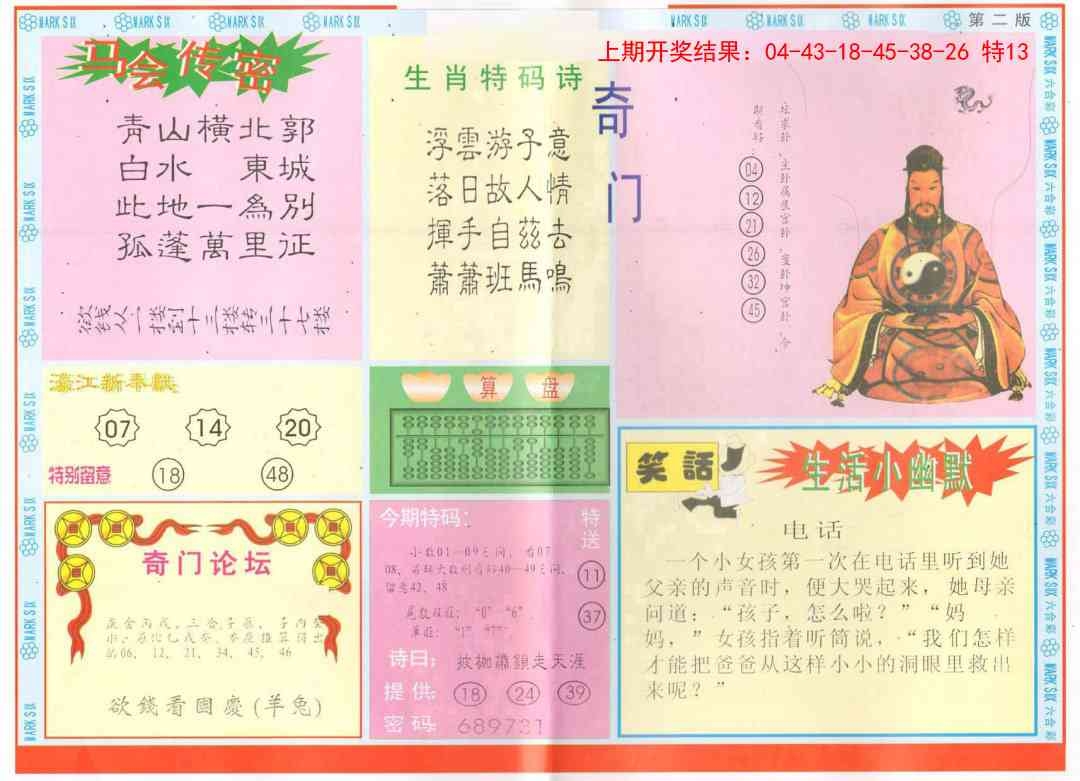 MARK SIX MARK SIX MARK SIX MARK SIX MARK SIX MARK SIX MARK SIX 第二版
上期开奖结果：04-43-18-45-38-26 特13
马会传密
青山横北郭
白水 東城
此地一為別
孤蓬萬里征
欲钱从一楼到十三楼转三十七楼
生肖特码诗
浮雲游子意
落日故人情
揮手自茲去
蕭蕭班馬鳴
奇门
04
12
21
26
32
45
濠江新春
07 14 20
特别留意 18 48
算盘
奇门论坛
的06、12、21、34、45、46
欲錢看國慶(羊兔)
今期特码：
特送
11
37
小数01—09之间，看07
08、
留意42、48
尾数
"0" "6"
诗曰：
走天涯
提供：18 24 39
密码：689731
笑話
生活小幽默
电话
一个小女孩第一次在电话里听到她
父亲的声音时，便大哭起来，她母亲
问道：“孩子，怎么啦？”“妈
妈，”女孩指着听筒说，“我们怎样
才能把爸爸从这样小小的洞眼里救出
来呢？”
MARK SIX 六合彩